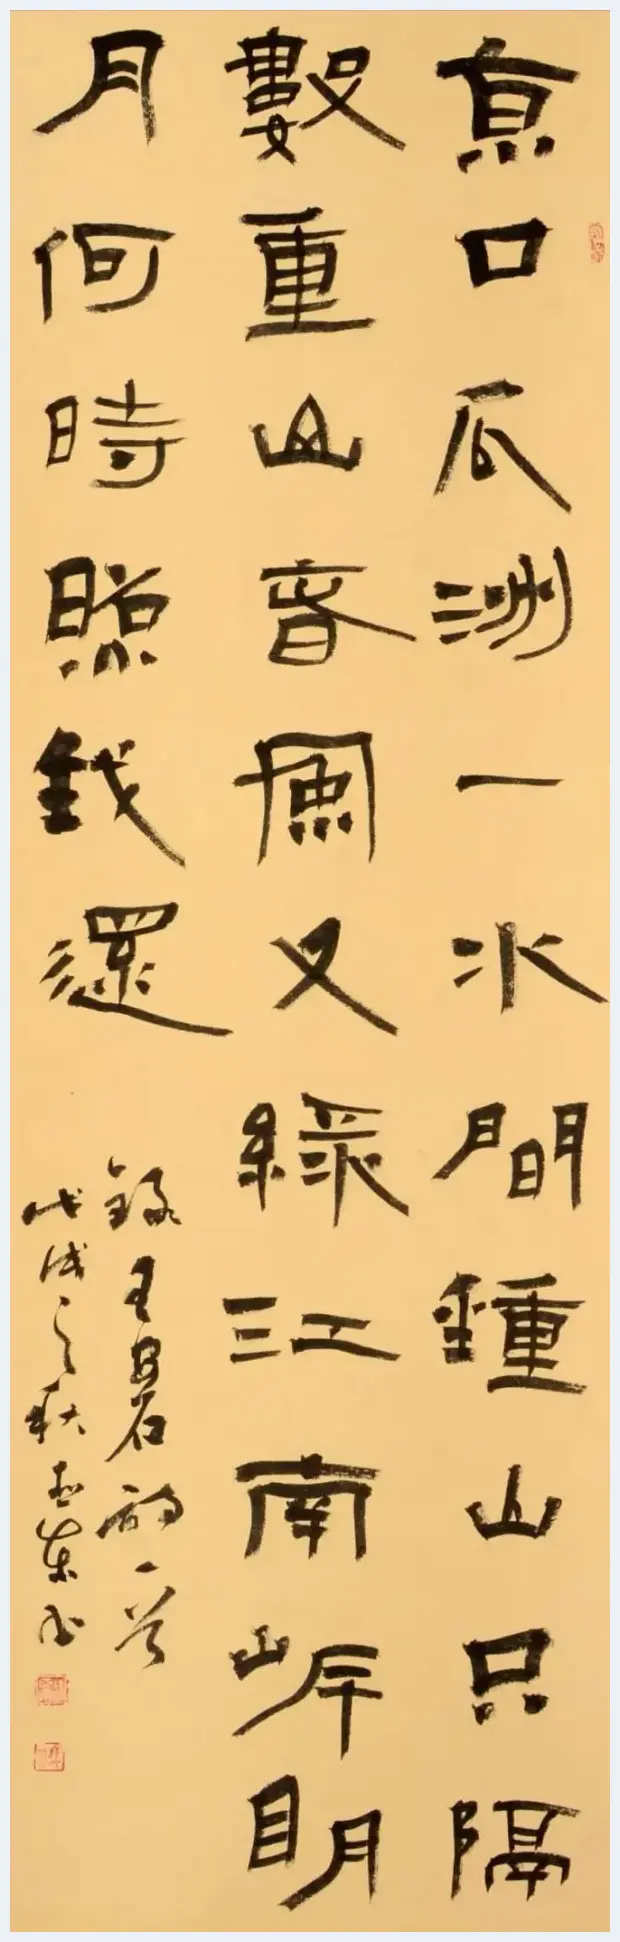 京口瓜洲一水間鍾山只隔
數重山春風又綠江南岸明
月何時照我還
錄王安石詩一首
戊戌之秋東書